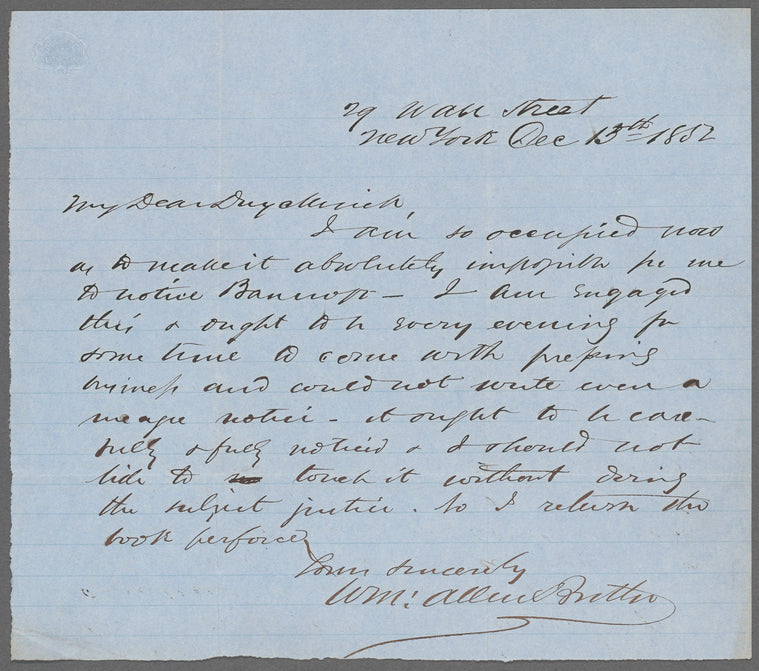 29 Wall Street
New York Dec 13th 1852
My Dear Duyckinck
I am so occupied now
as to make it absolutely impossible for me
to notice Bancroft — I am engaged
this & ought to be every evening for
some time to come with pressing
business and could not write even a
meagre notice — it ought to be care-
fully & fully noticed & I should not
like to touch it without doing
the subject justice. So I return the
book perforce
Yours sincerely
Wm: Allen Butler